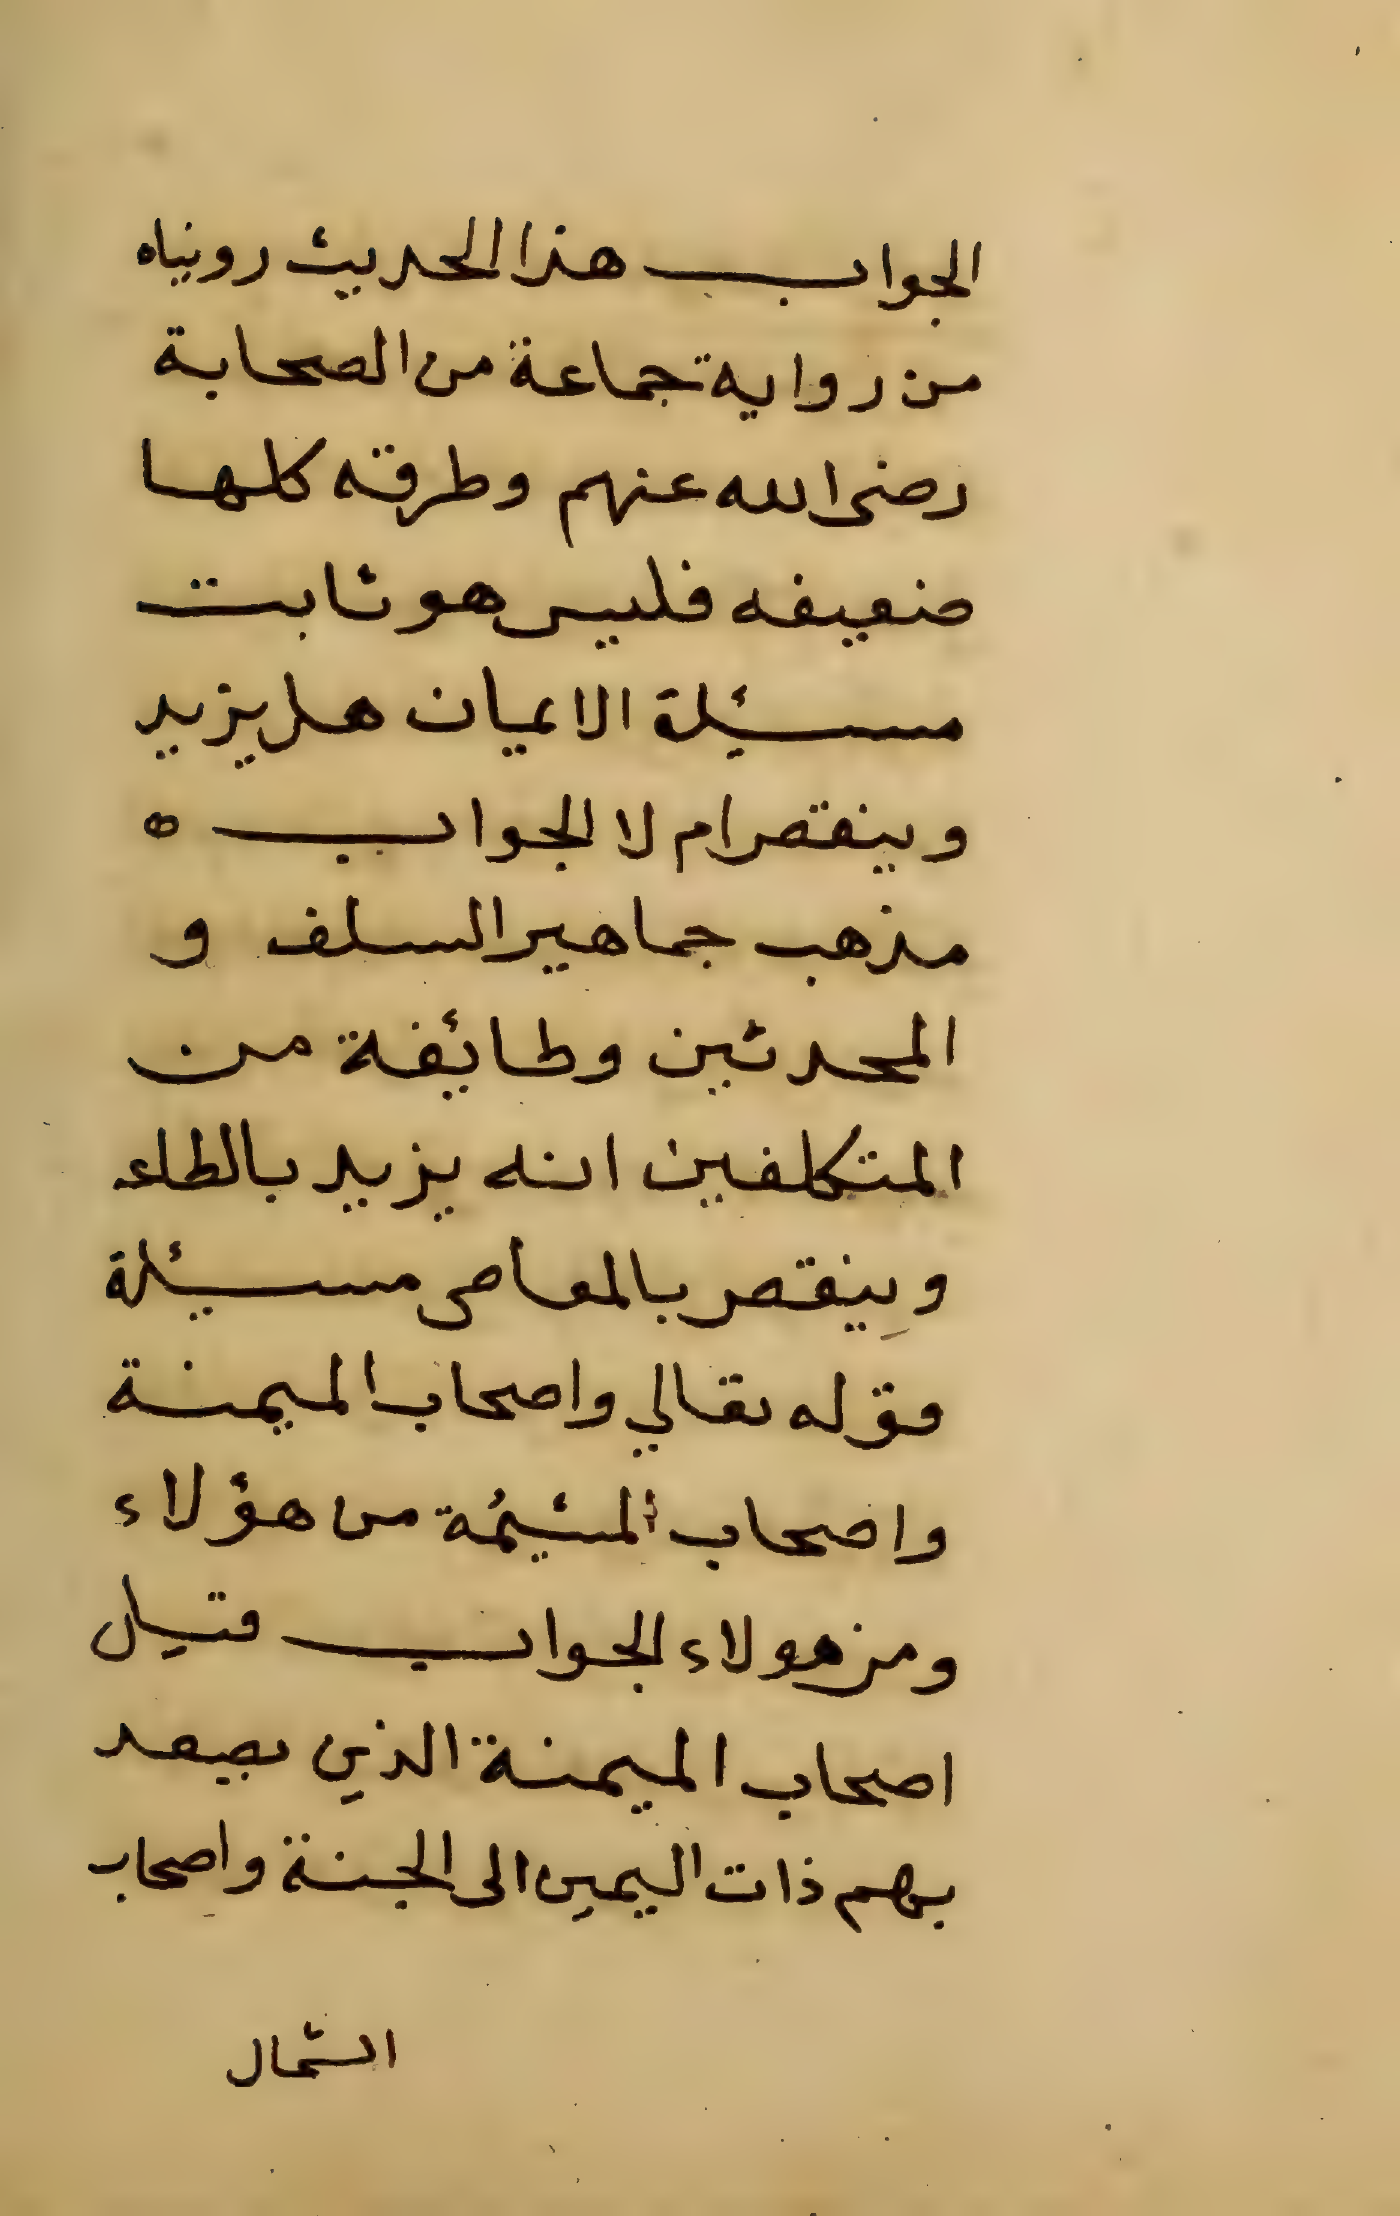 الجواب هذا الحديث رويناه
من رواية جماعة من الصحابة
رضى الله عنهم وطرقه كلها
ضعيفه فليس هو ثابت
مسئلة الايمان هل يزيد
وينقص ام لا الجواب ه
مذهب جماهير السلف و
المحدثين وطائفة من
المتكلفين انه يزيد بالطاء
وينقص بالمعاصى مسئلة
قوله تعالي واصحاب الميمنة
واصحاب المشئمة من هؤلاء
ومن هولاء الجواب قيل
اصحاب الميمنة الذي يصعد
بهم ذات اليمين الى الجنة واصحاب
الشمال